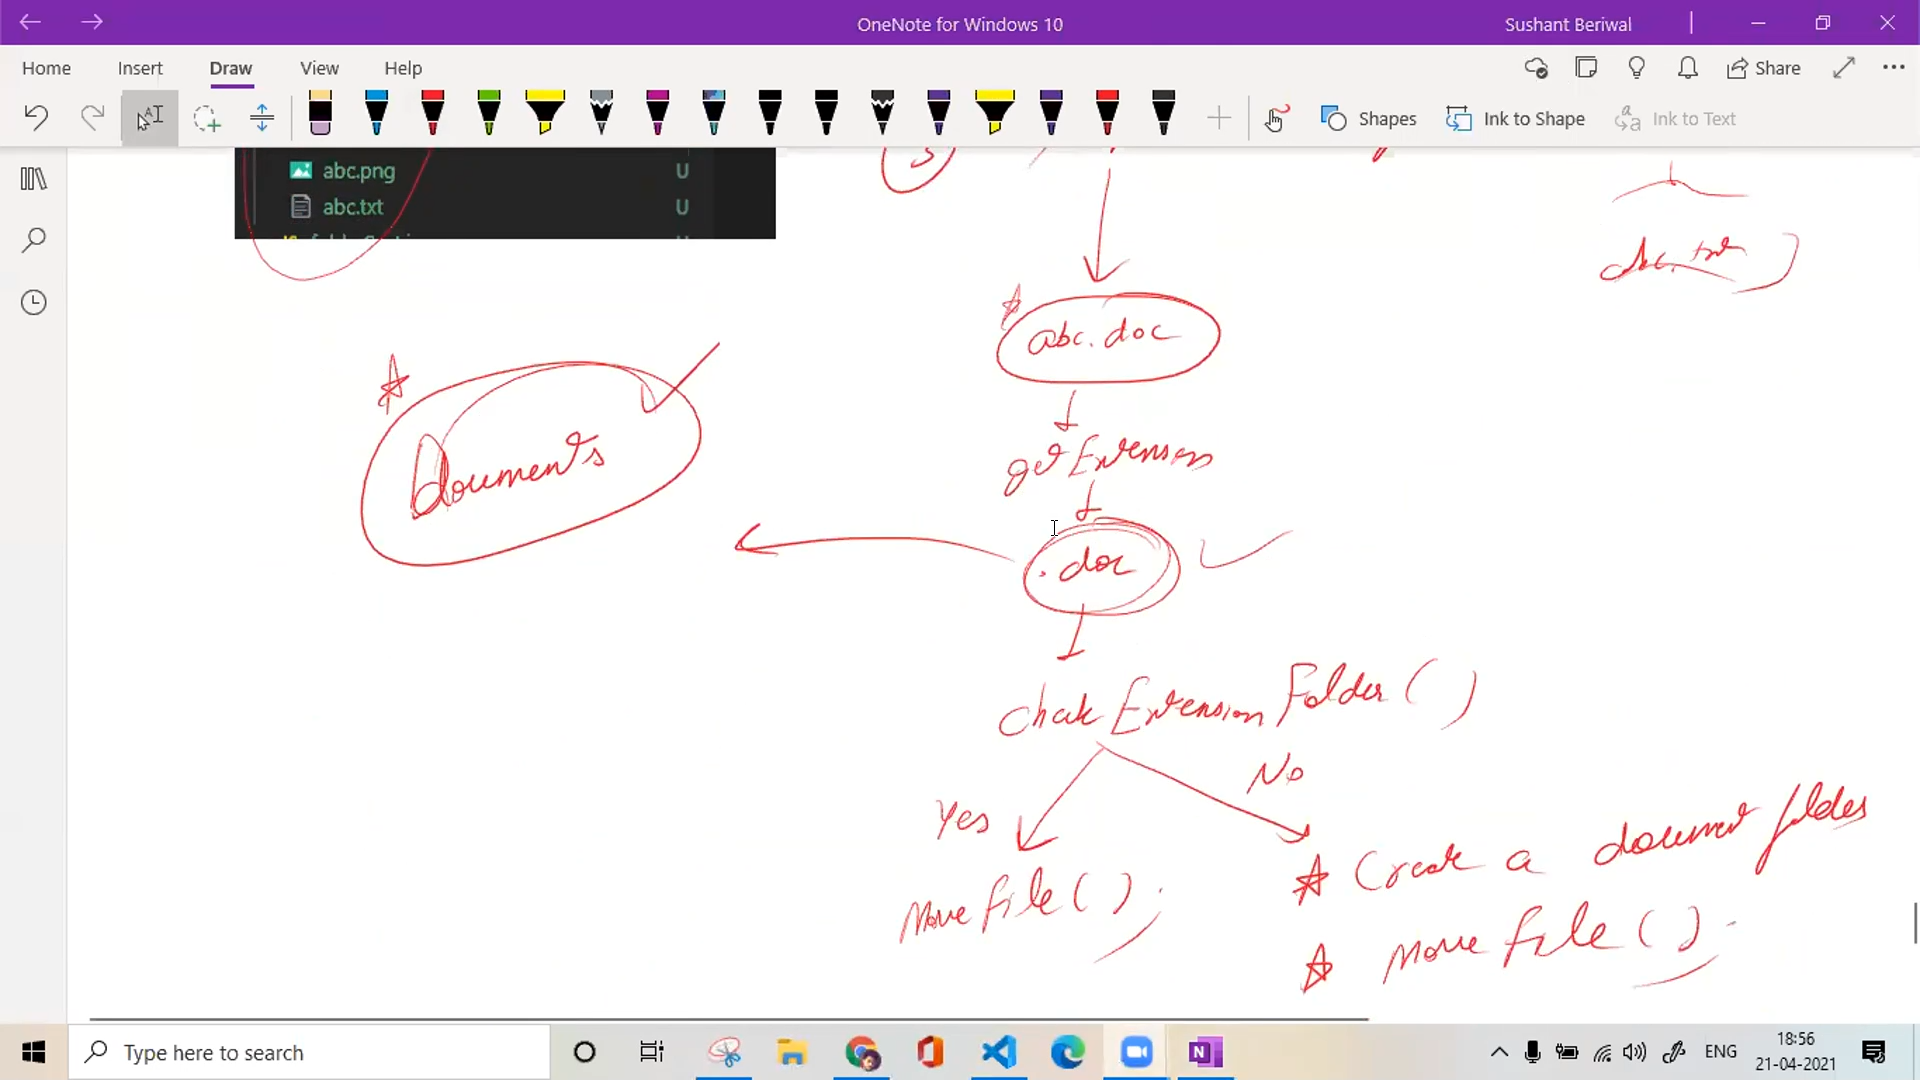 OneNote for Windows 10
Sushant Beriwal
Home Insert Draw View Help
Share
Shapes
Ink to Shape
Ink to Text
abc.png U
abc.txt U
abc.txt
abc.doc
Documents
get Extension
.doc
check Extension Folder ( )
No
Yes
Create a document folder
Move file ( ).
move file ( ).
Type here to search
ENG
18:56
21-04-2021